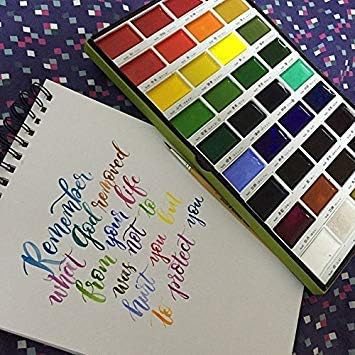 Remember
what god removed
from your life
was not to
hurt you but
to protect you